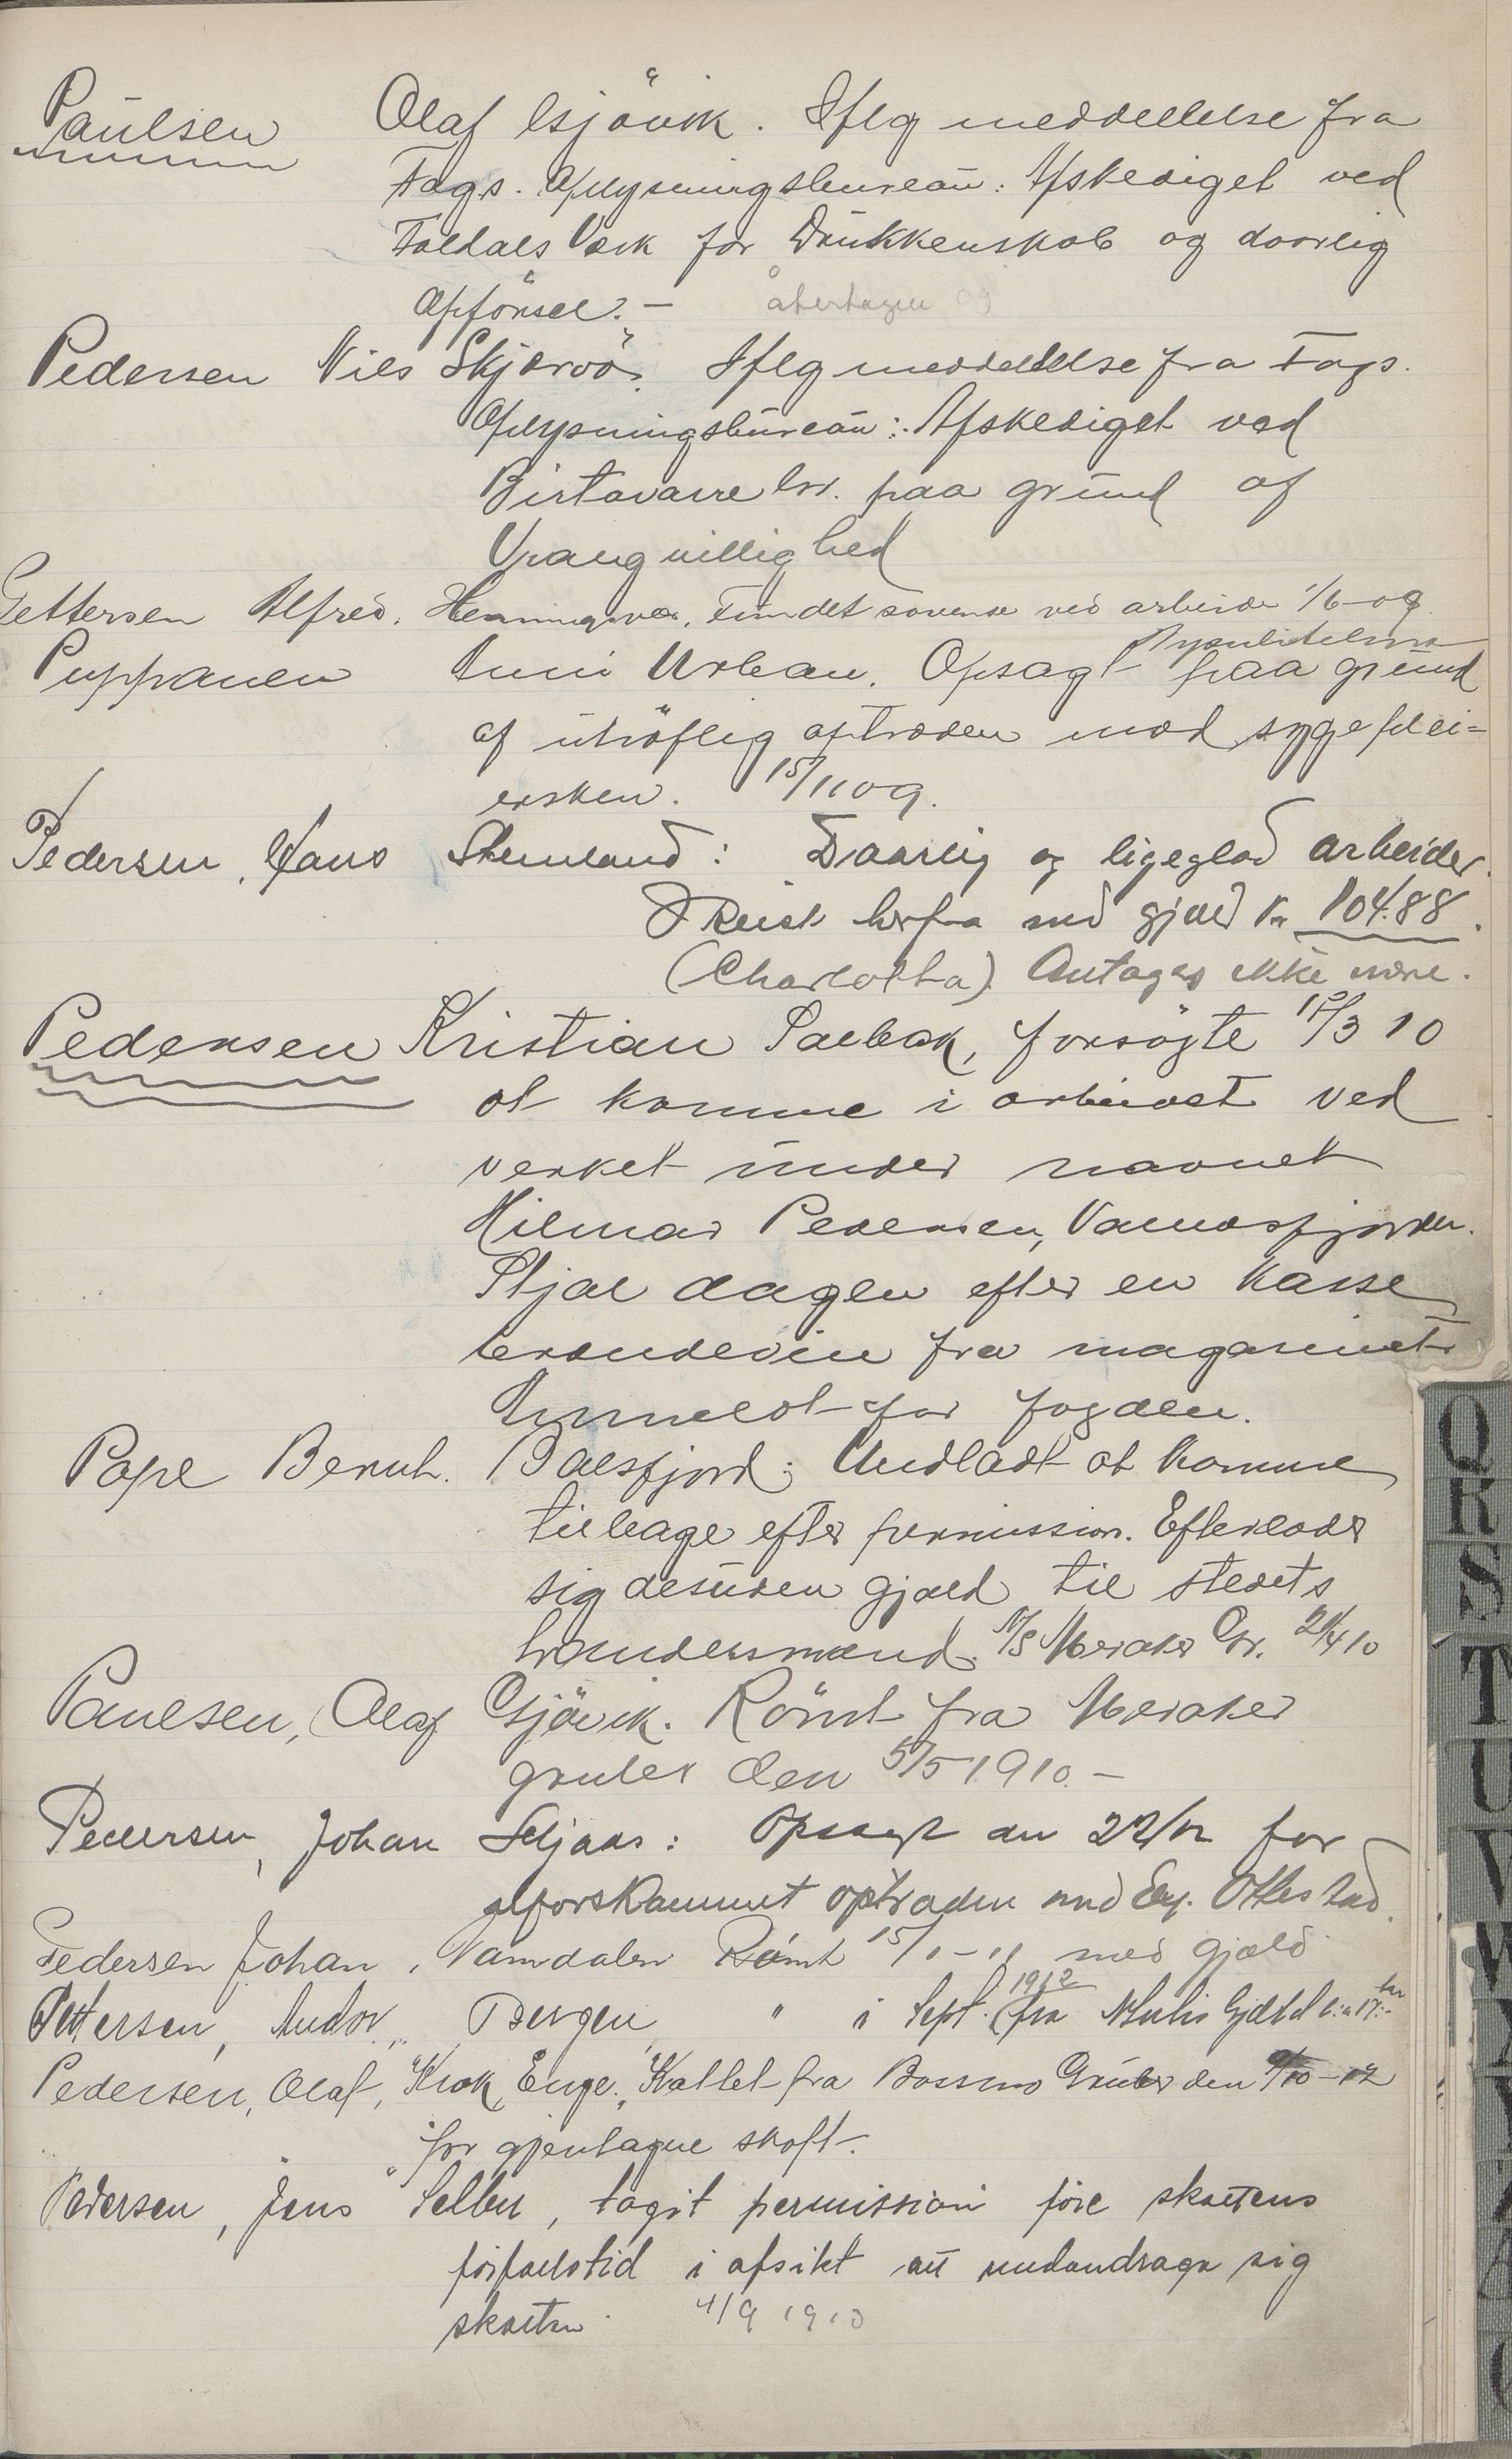 Paulsen Olaf Gjövik. Iflg meddellelse fra
Fags. Oplysningsbureau: Afskediget ved
Foldals Værk for Drukkenskab og daarlig
Opførsel. — återtagen 09
Pedersen Nils Skjærvö. Iflg meddelelse fra Fags.
Oplysningsbureau: Afskediget ved
Birtavarre Gr. paa grund af
Vrangvillighed
Pettersen Alfred. Henningsvær. Fundet sovende ved arbeide 1/6-09
Puppanen Anni Urban. Opsagt paa grund
af uhöflig optræden mod sygeplei-
ersken. 15/11 09.
Pedersen, Hans Stenland: Daarlig og ligeglad arbeider.
Reist herfra med gjæld Kr 104.88.
(Charlotta) Antages ikke mere.
Pedersen Kristian Saltbak, forsögte 15/3 10
at komme i arbeidet ved
verket under navnet
Hilmar Pedersen, Namdsfjorden.
Stjal dagen efter en kasse
brændevin fra magasinet
Anmeldt for fogden.
Pope Bernh. Balsfjord: Undladt at komme
tilbage efter permission. Efterlader
sig desuden gjæld til stedets
handelsmænd. M/S Meraker Gr. 21/4 10
Paulsen, Olaf Gjövik. Römt fra Meraker
gruber den 5/5 1910. —
Pedersen, Johan Seljaas: Opsagt den 22/12 for
uforskammet optræden mod Ey. Ottestad.
Pedersen Johan, Namdalen Römt 15/1-11 med gjæld
Pettersen, Andor, Bergen " i Sept. 1912 fra Gjæld
Pedersen, Olaf, "Krok, Enge", Kastet fra Bossmo Gruber den 9/10-12
for gjentagne skoft.
Pedersen, Jens "Selbu", tagit permission före skattens
förfallotid i afsikt att undandraga sig
skatten 4/9 1913